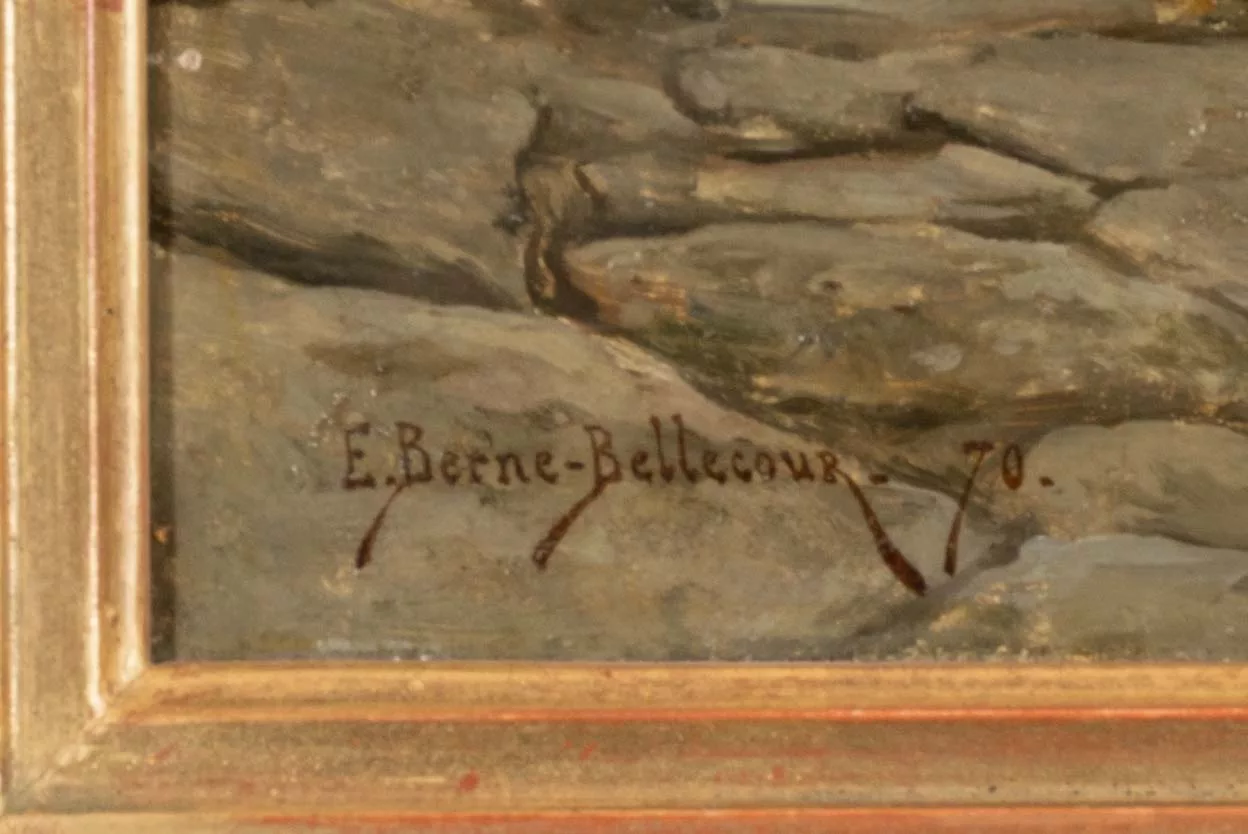 E. Berne-Bellecour - 70.